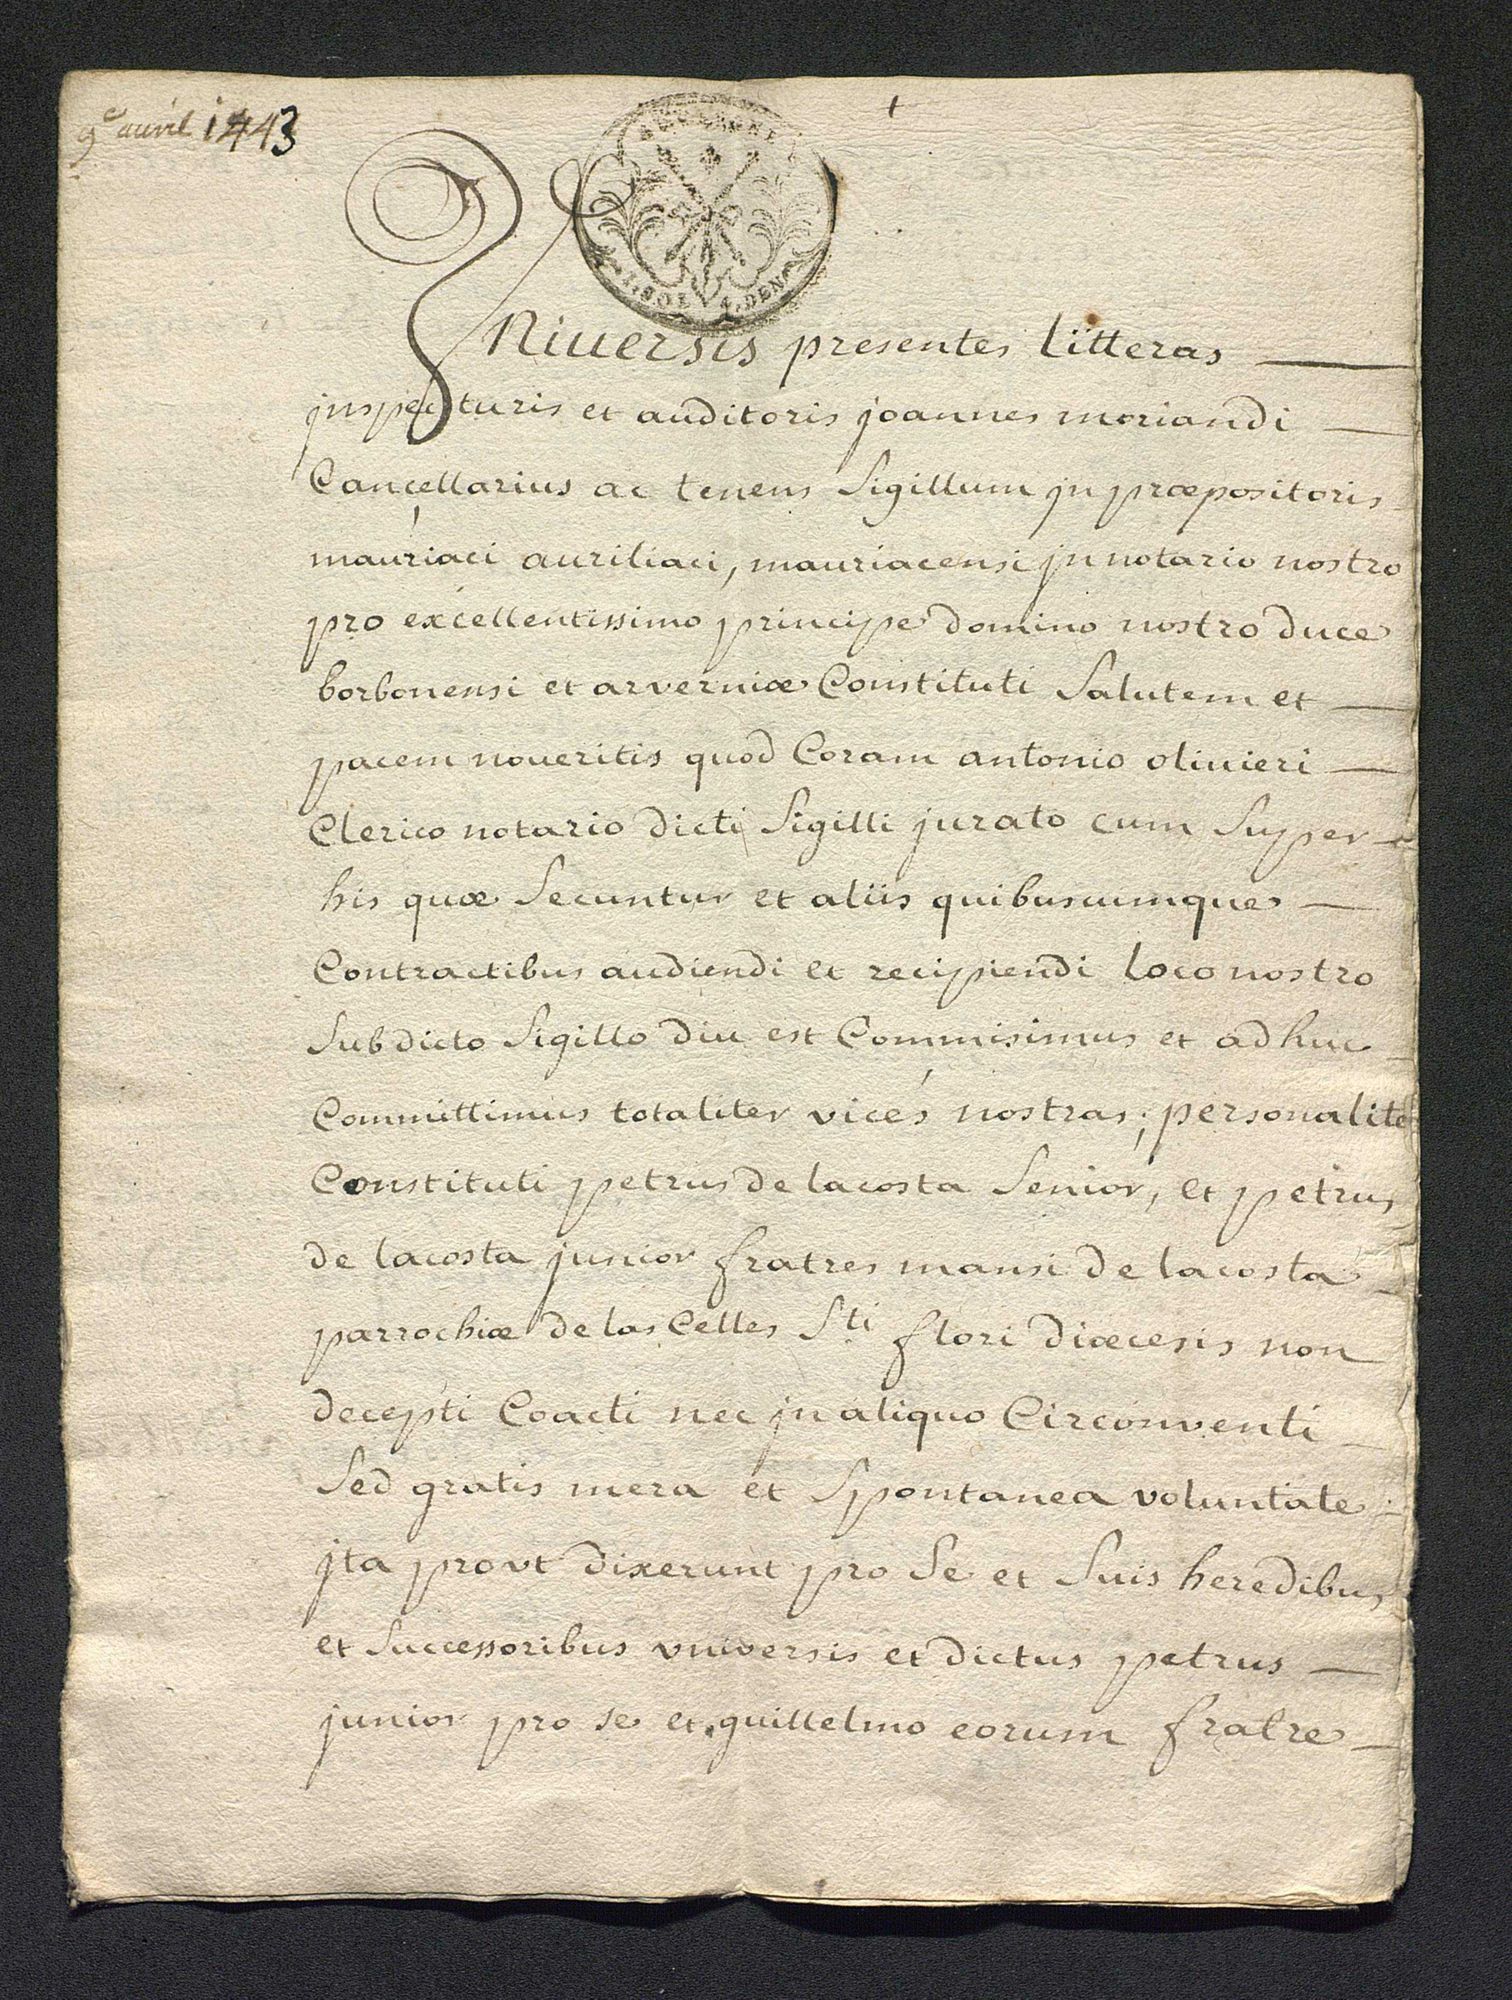 9e auril 1443
AUVERGNE
1. SOL 4. DEN
Vniuersis presentes litteras
juspecturis et auditoris joannes moriandi
Cancellarius ac tenens Sigillum jn præpositoris
mauriaci auriliaci, mauriacensi jn notario nostro
pro excellentissimo principe domino nostro duce
borbonensi et arverniæ Constituti Salutem et
pacem noueritis quod Coram antonio oliuieri
Clerico notario dicti Sigilli jurato cum Super
his quæ Secuntur et aliis quibuscumque
Contractibus audiendi et recipiendi loco nostro
Sub dicto Sigillo diu est Commisimus et adhuc
Committimus totaliter vicés nostras; personalite
Constituti petrus de lacosta Senior, et petrus
de lacosta junior fratres mansi de lacosta
parrochiæ de las Celles Sti flori diœcesis non
decepti Coacti nec jn aliquo Circonventi
Sed gratis mera et Spontanea voluntate
jta provt dixerunt pro Se et Suis heredibus
et Successoribus vniversis et dictus petrus
junior pro se et guillelmo eorum fratre